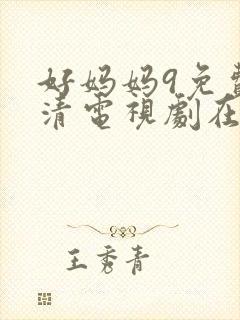 好妈妈9免費
清電視劇在
王秀青